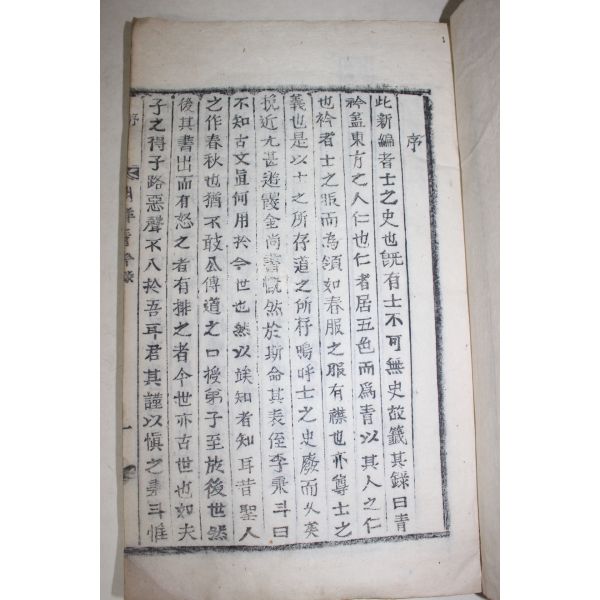 序
此新編者士之史也旣有士不可無史故籤其錄曰青
衿盖東方之人仁也仁者居五色而爲青以其人之仁
也衿者士之服而為領如春服之服有襟也亦尊士之
義也是以士之所存道之所存嗚呼士之史廢而久矣
挽近尤甚遊霞金尚書慨然於斯命其表侄李秉斗曰
不知古文眞何用於今世也然以竢知者知耳昔聖人
之作春秋也猶不敢公傳道之口授弟子至於後世然
後其書出而有怒之者有排之者今世亦古世也如夫
子之得子路惡聲不入於吾耳君其謹以愼之秉斗惟
序
青衿錄
一
1